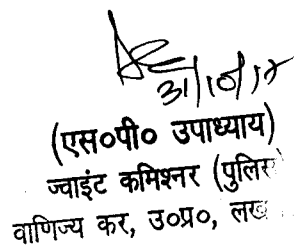 31/10/17
(एस०पी० उपाध्याय)
ज्वाइंट कमिश्नर (पुलिस
वाणिज्य कर, उ०प्र०, लख